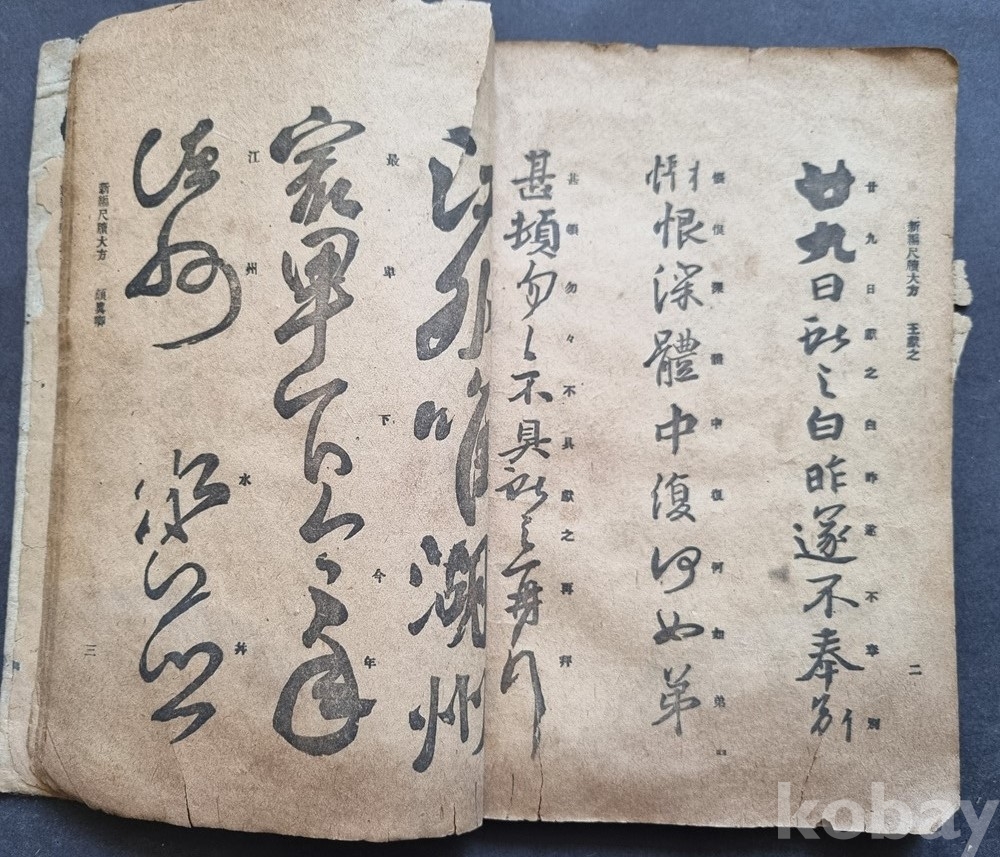 新編尺牘大方 王獻之
二
廿九日獻之白昨遂不奉別
廿九日獻之白昨遂不奉別
悵恨深體中復何如弟
悵恨深體中復何如弟
甚頓勿々不具獻之再拜
甚頓勿々不具獻之再拜
江外唯湖州
最卑下今年
最卑下今年
江州水并
州水并
新編尺牘大方 顏真卿
三
kobay